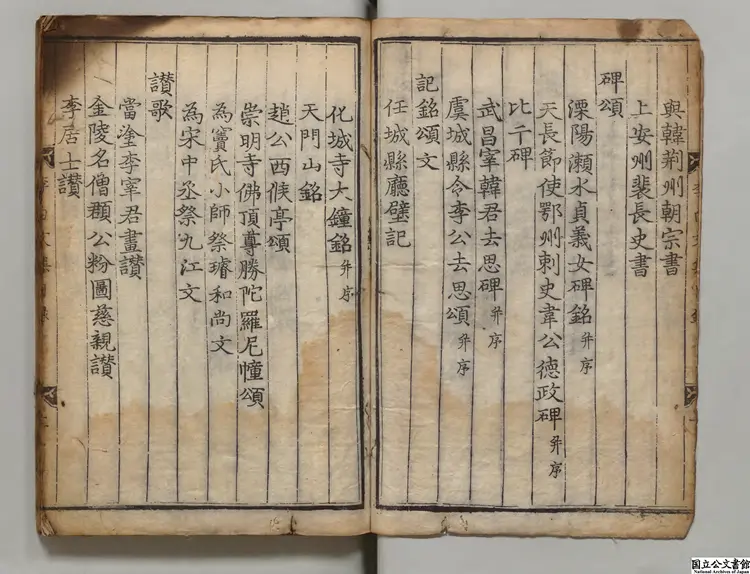 與韓荊州朝宗書
上安州裴長史書
碑頌
溧陽瀨水貞義女碑銘 并序
天長節使鄂州刺史韋公德政碑 并序
比干碑
武昌宰韓君去思碑 并序
虞城縣令李公去思頌 并序
記銘頌文
任城縣廳壁記
化城寺大鐘銘 并序
天門山銘
趙公西候亭頌
崇明寺佛頂尊勝陀羅尼幢頌
為竇氏小師祭璿和尚文
為宋中丞祭九江文
讃歌
當塗李宰君畫讃
金陵名僧頵公粉圖慈親讃
李居士讃
国立公文書館
National Archives of Japan